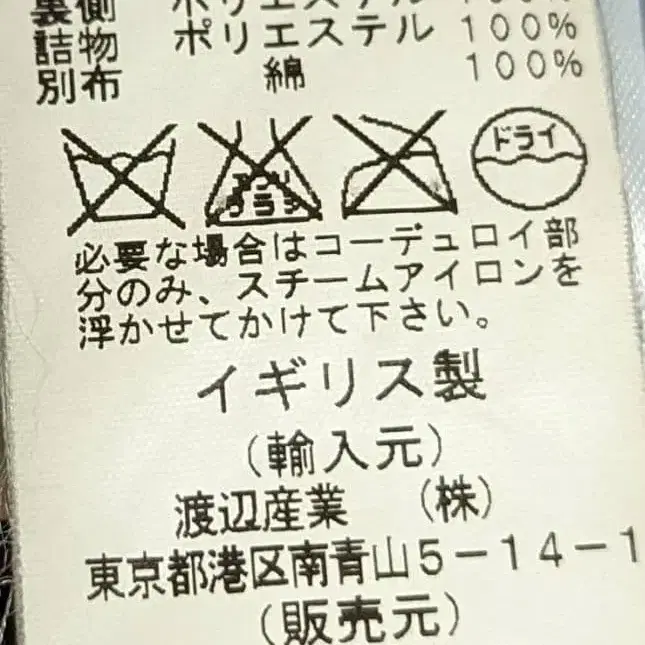 裏側 ポリエステル 100%
詰物 ポリエステル 100%
別布 綿 100%
エンソ サラシ ドライ
必要な場合はコーデュロイ部
分のみ、スチームアイロンを
浮かせてかけて下さい。
イギリス製
(輸入元)
渡辺産業 (株)
東京都港区南青山5-14-1
(販売元)